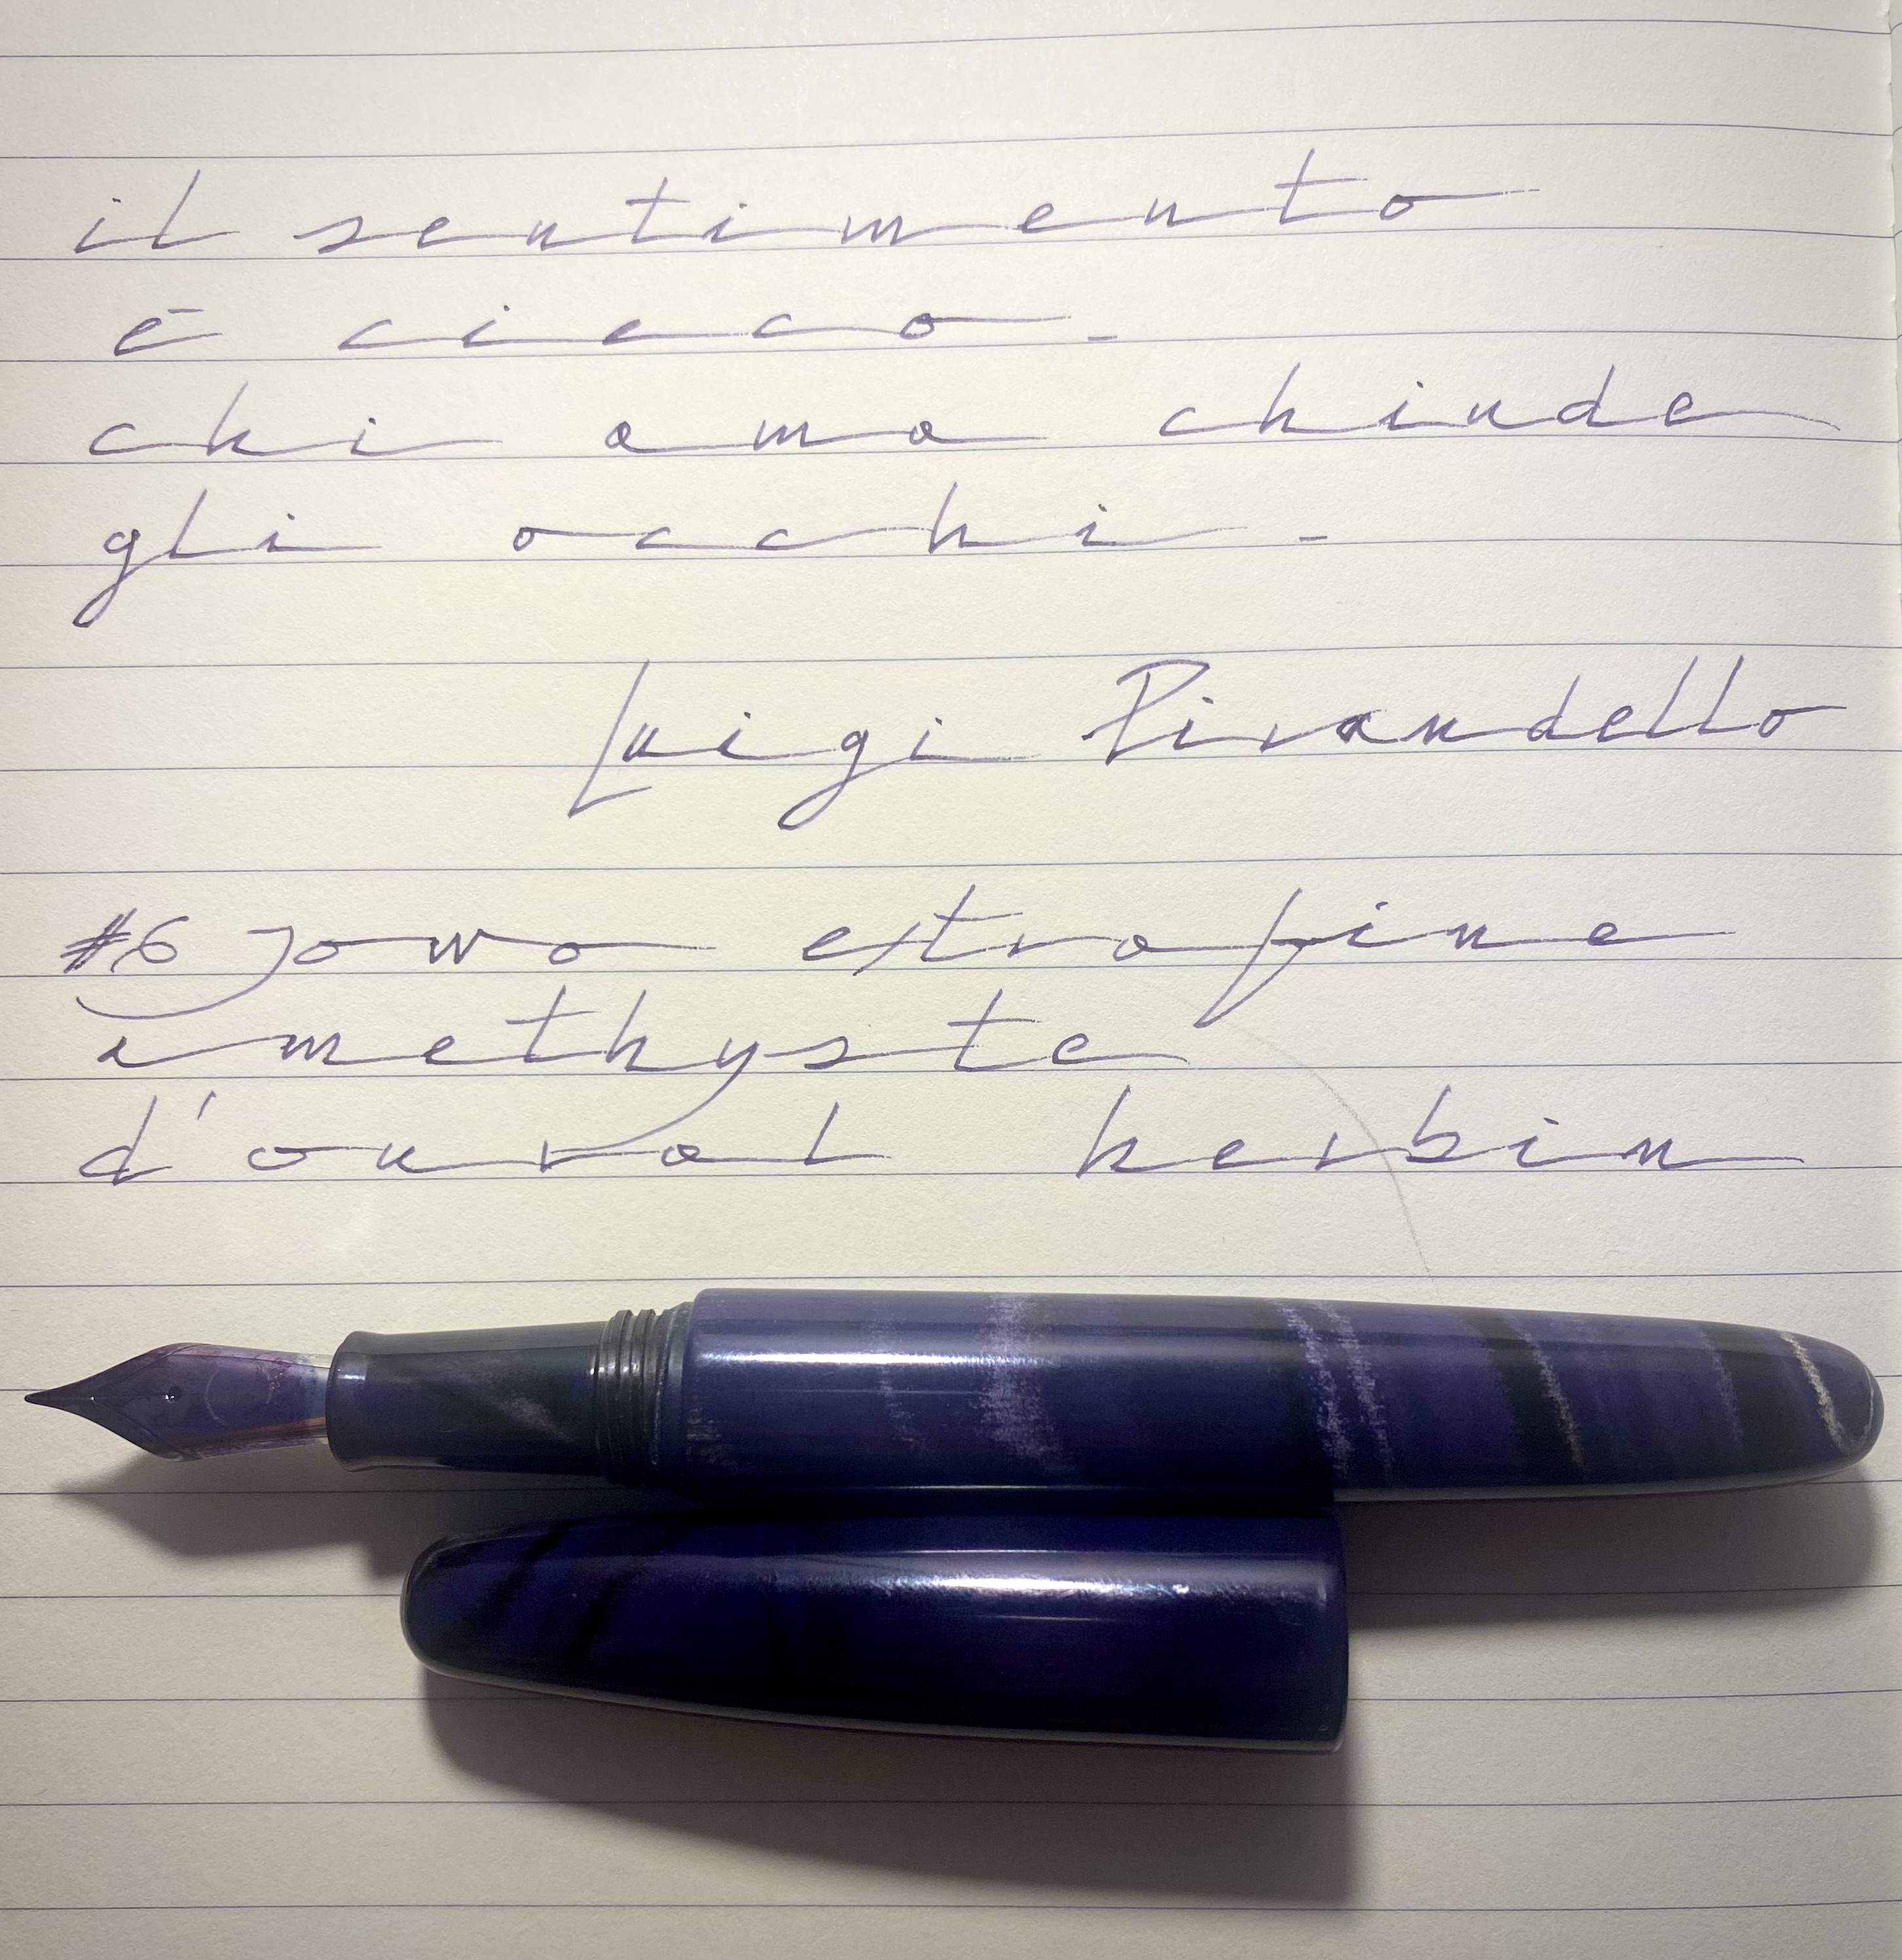 il sentimento
è cieco.
chi ama chiude
gli occhi.
Luigi Pirandello
#6 jowo extrafine
amethyste
d'oural herbin